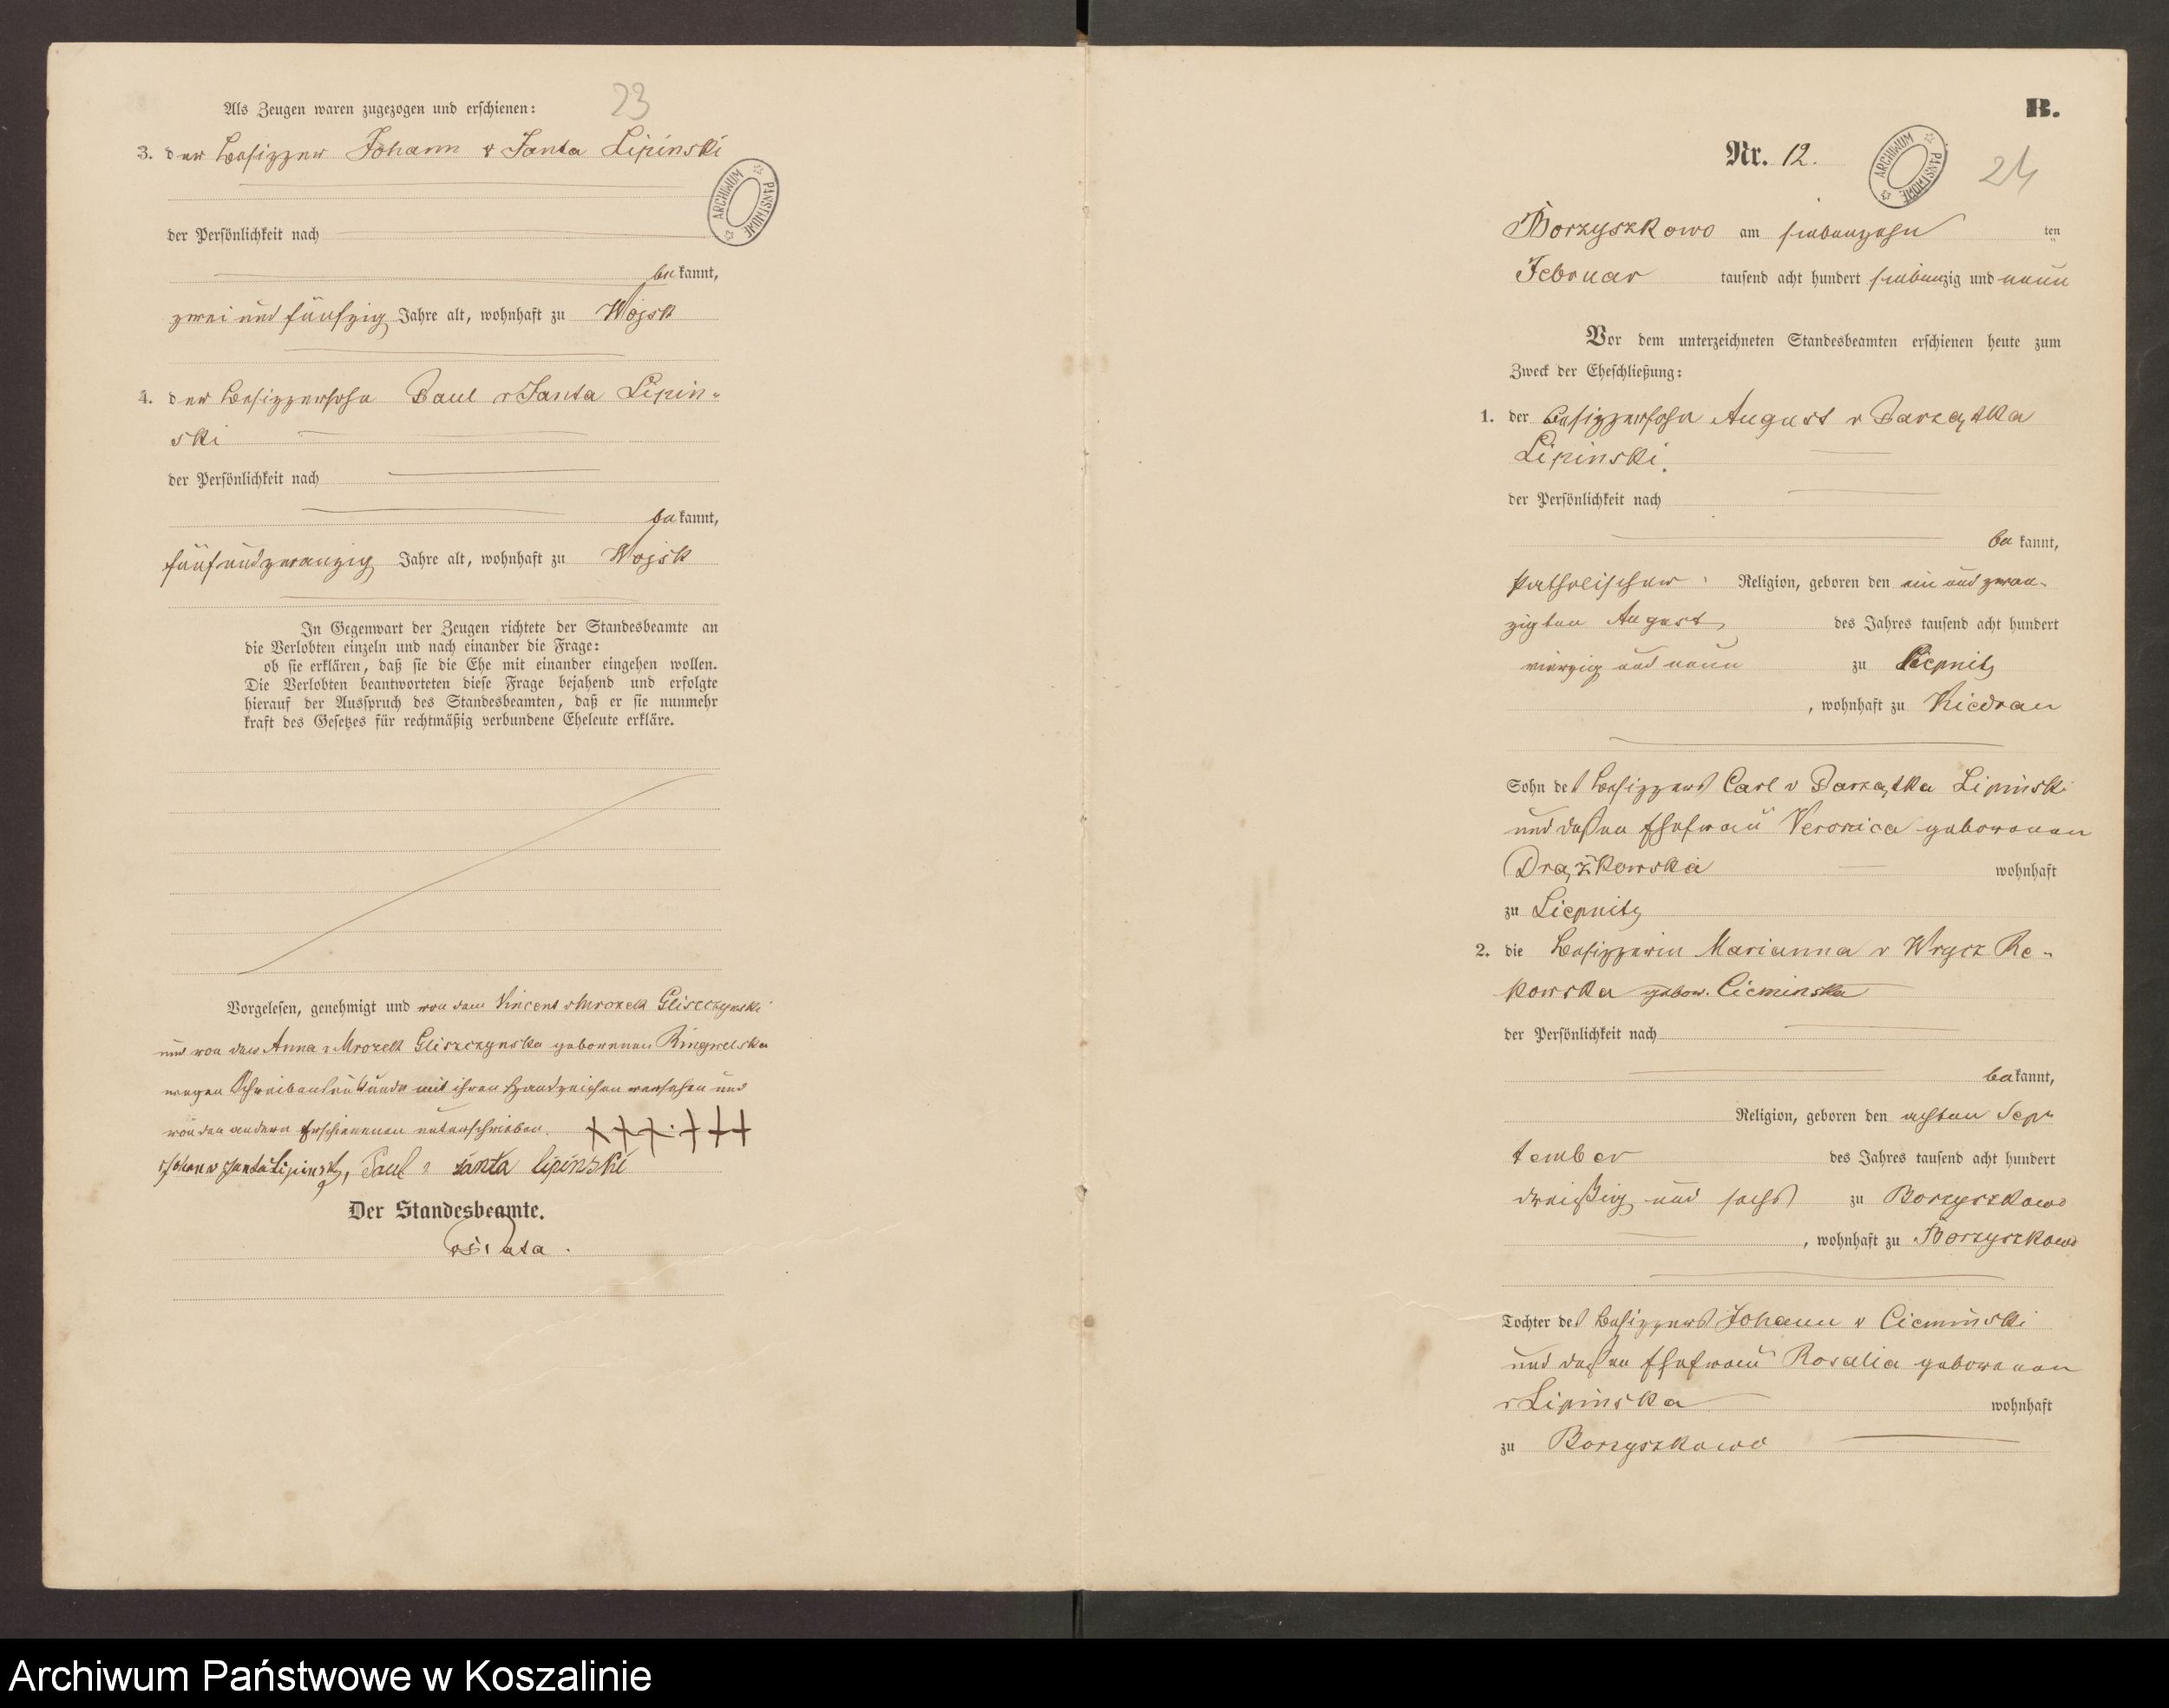 23
Als Zeugen waren zugezogen und erschienen:
3. der Besitzer Johann v Janta Lipinski
ARCHIWUM PAŃSTWOWE
der Persönlichkeit nach
bekannt,
zwei und fünfzig Jahre alt, wohnhaft zu Wojsk
4. der Besitzersohn Paul v Janta Lipin-
ski
der Persönlichkeit nach
bekannt,
fünfundzwanzig Jahre alt, wohnhaft zu Wojsk
In Gegenwart der Zeugen richtete der Standesbeamte an
die Verlobten einzeln und nach einander die Frage:
ob sie erklären, daß sie die Ehe mit einander eingehen wollen.
Die Verlobten beantworteten diese Frage bejahend und erfolgte
hierauf der Ausspruch des Standesbeamten, daß er sie nunmehr
kraft des Gesetzes für rechtmäßig verbundene Eheleute erkläre.
Vorgelesen, genehmigt und von dem Vincent v Mrozek Gliszczynski
und von der Anna v Mrozek Gliszczynska geborenen Ringwelska
wegen Schreibensunkunde mit ihren Handzeichen versehen und
von den andern Erschienenen unterschrieben. +++.+++
Johann v Janta Lipinski, Paul v Janta Lipinski
Der Standesbeamte.
B.
Nr. 12.
ARCHIWUM PAŃSTWOWE
24
Borzyszkowo am siebenzehn ten
Februar tausend acht hundert siebenzig und neun
Vor dem unterzeichneten Standesbeamten erschienen heute zum
Zweck der Eheschließung:
1. der Besitzersohn August v Parzątka
Lipinski.
der Persönlichkeit nach
bekannt,
katholischer Religion, geboren den ein und zwan-
zigten August des Jahres tausend acht hundert
vierzig und neun zu Liepnitz
, wohnhaft zu Kiedrau
Sohn des Besitzers Carl v Parzątka Lipinski
und dessen Ehefrau Veronica geborenen
Drążkowska wohnhaft
zu Liepnitz
2. die Besitzerin Marianna v Wrycz Re-
kowska gebor. Cieminska
der Persönlichkeit nach
bekannt,
Religion, geboren den achten Sep-
tember des Jahres tausend acht hundert
dreißig und sechs zu Borzyszkowo
, wohnhaft zu Borzyszkowo
Tochter des Besitzers Johann v Cieminski
und dessen Ehefrau Rosalia geborenen
v Lipinska wohnhaft
zu Borzyszkowo
Archiwum Państwowe w Koszalinie